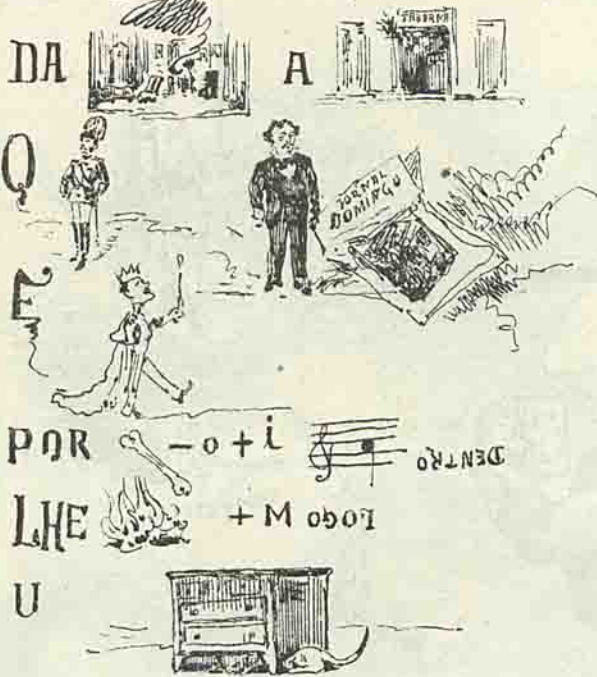 DA A TABERNA
O
JORNAL
DOMINGO
E
POR - o + i DENTRO
LHE + M LOGO
U